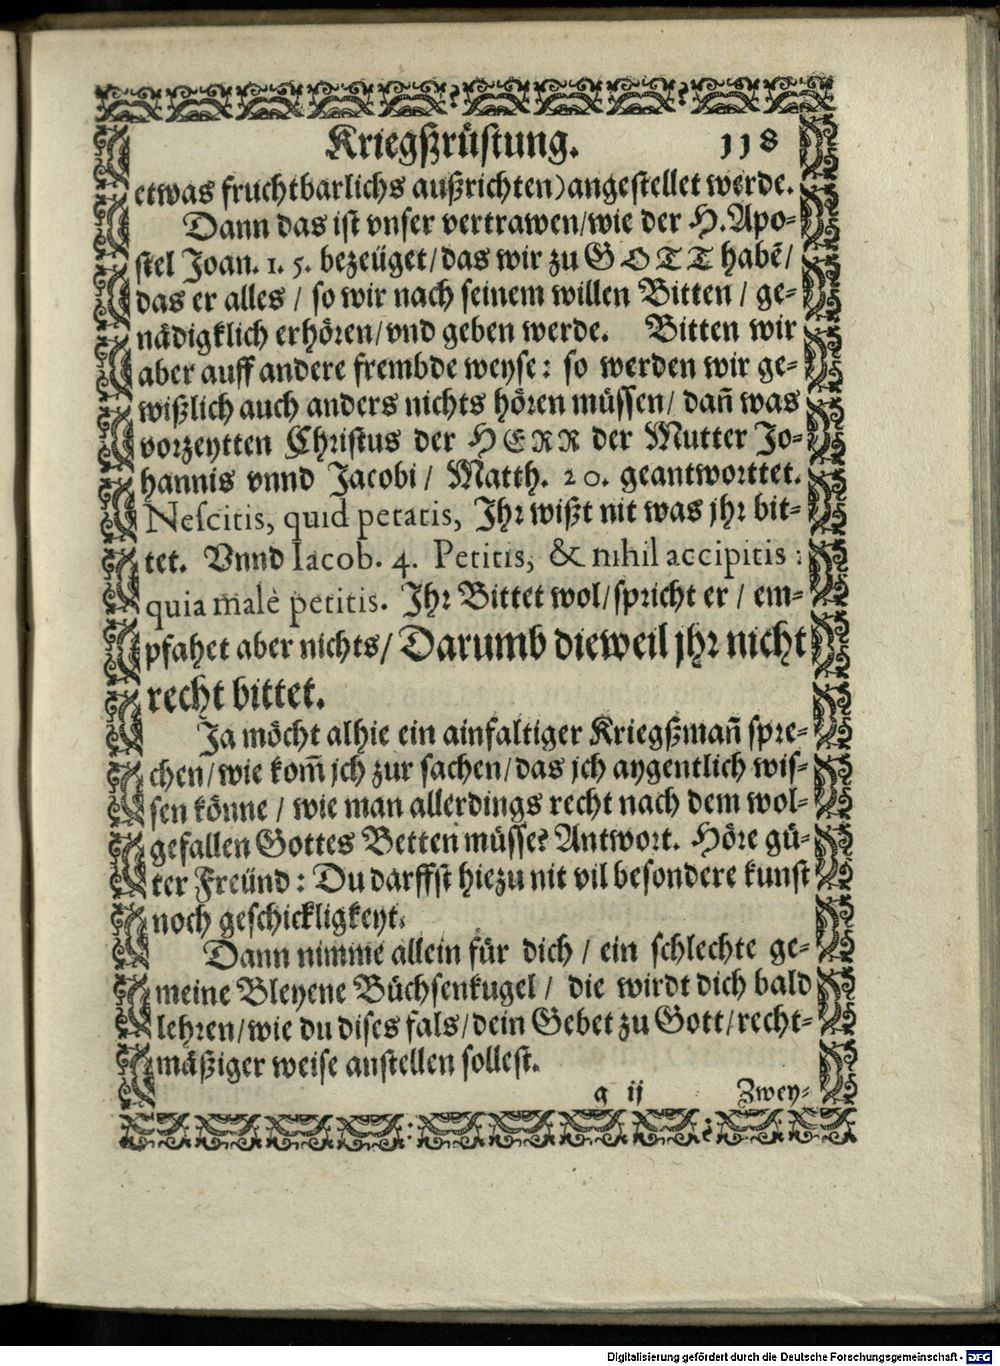 Kriegßrüstung. 118
etwas fruchtbarlichs außrichten) angestellet werde.
Dann das ist vnser vertrawen/wie der H. Apo-
stel Joan. 1. 5. bezeüget/das wir zu GOTT habẽ/
das er alles / so wir nach seinem willen Bitten / ge-
nädigklich erhören/vnd geben werde. Bitten wir
aber auff andere frembde weyse: so werden wir ge-
wißlich auch anders nichts hören müssen/ dañ was
vorzeytten Christus der HERR der Mutter Jo-
hannis vnnd Jacobi / Matth. 20. geantworttet.
Nescitis, quid petatis, Jhr wißt nit was jhr bit-
tet. Vnnd Iacob. 4. Petitis, & nihil accipitis:
quia malè petitis. Jhr Bittet wol/spricht er / em-
pfahet aber nichts/ Darumb dieweil jhr nicht
recht bittet.
Ja möcht alhie ein ainfaltiger Kriegßmañ spre-
chen/wie kom̃ jch zur sachen/das jch aygentlich wis-
sen könne / wie man allerdings recht nach dem wol-
gefallen Gottes Betten müsse? Antwort. Höre gü-
ter Freünd: Du darffst hiezu nit vil besondere kunst
noch geschickligkeyt.
Dann nimme allein für dich / ein schlechte ge-
meine Bleyene Büchsenkugel / die wirdt dich bald
lehren/wie du dises fals/dein Gebet zu Gott/recht-
mäßiger weise anstellen sollest.
g ij Zwey-
Digitalisierung gefördert durch die Deutsche Forschungsgemeinschaft - DFG